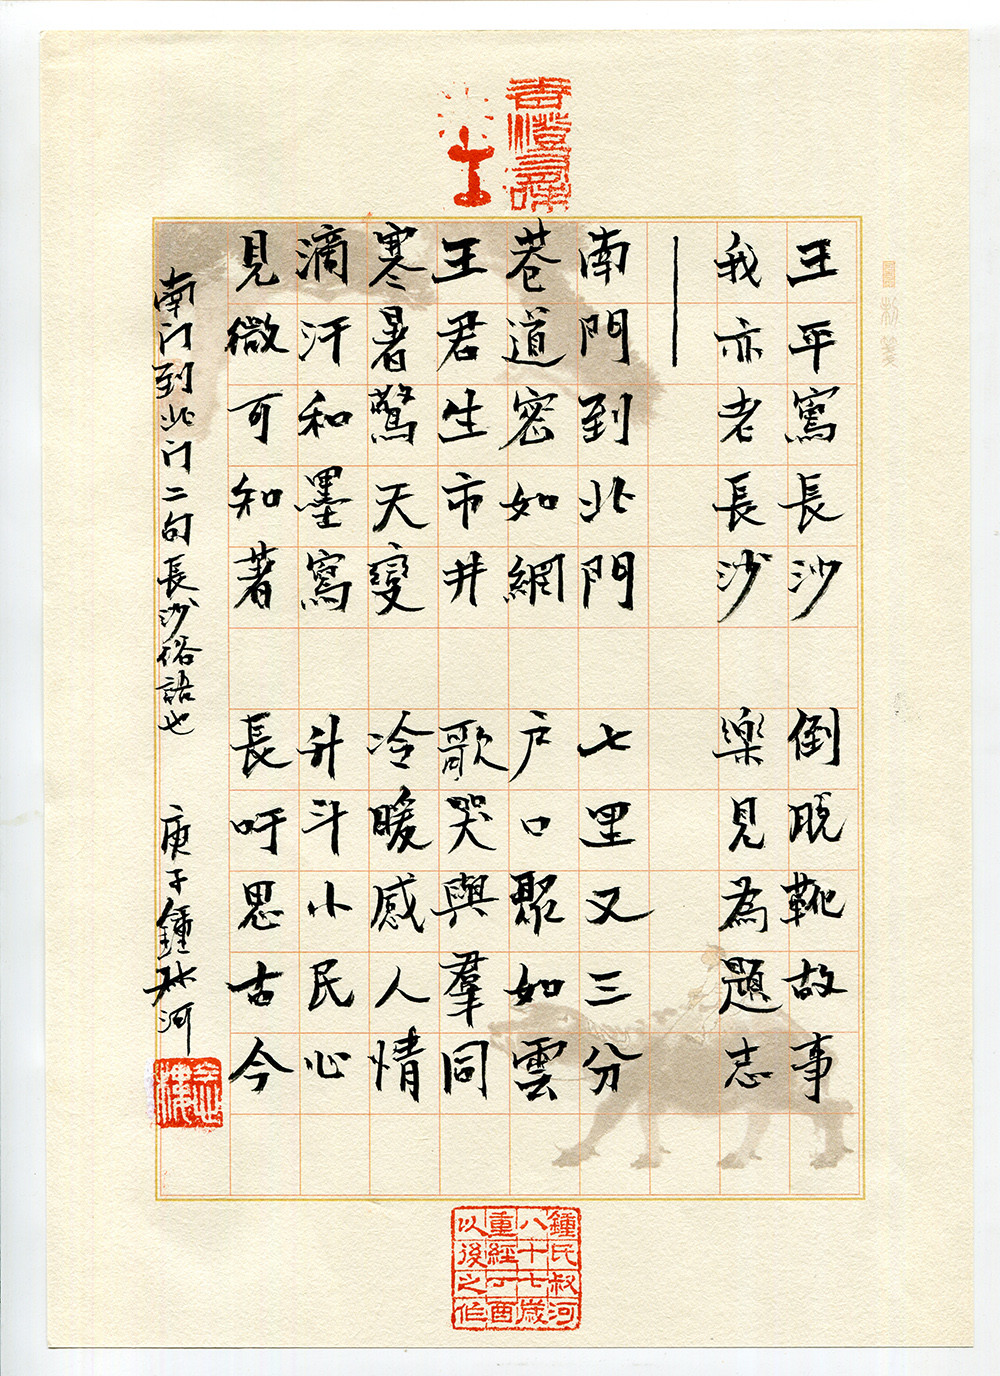 王平寫長沙 倒脱靴故事
我亦老長沙 樂見為題志
南門到北門 七里又三分
巷道密如網 户口聚如雲
王君生市井 歌哭與羣同
寒暑驚天變 冷暖感人情
滴汗和墨寫 升斗小民心
見微可知著 長吁思古今
南门到北门二句長沙俗語也 庚子鍾叔河
念樓
鍾民叔河
八十七歲
重經丁酉
以後之作